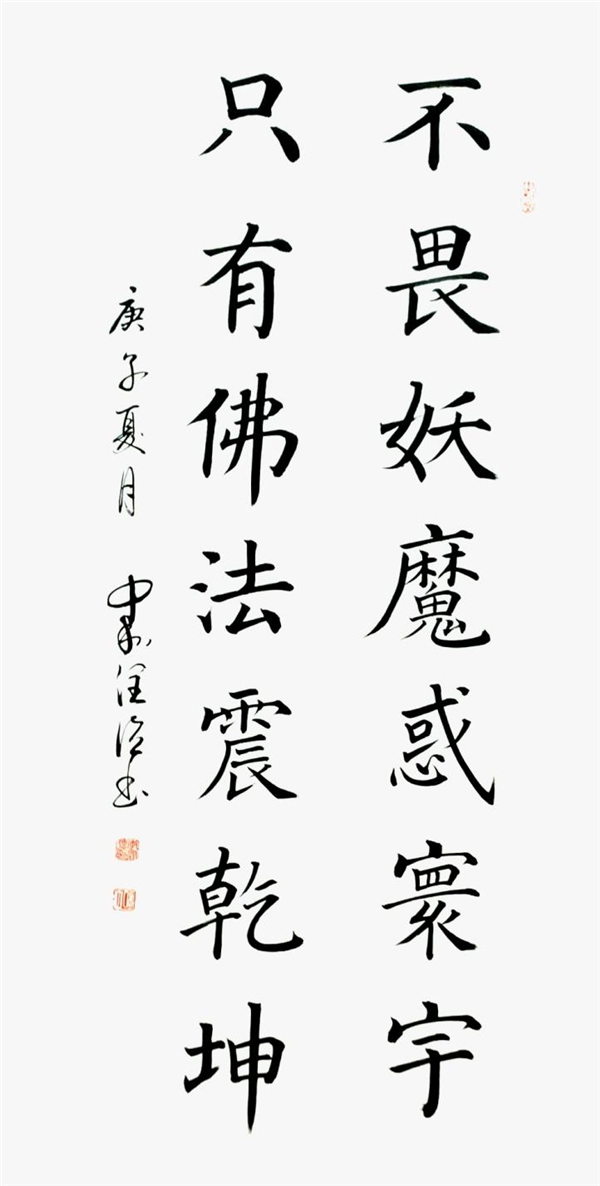 不畏妖魔惑寰宇
只有佛法震乾坤
庚子夏月
书